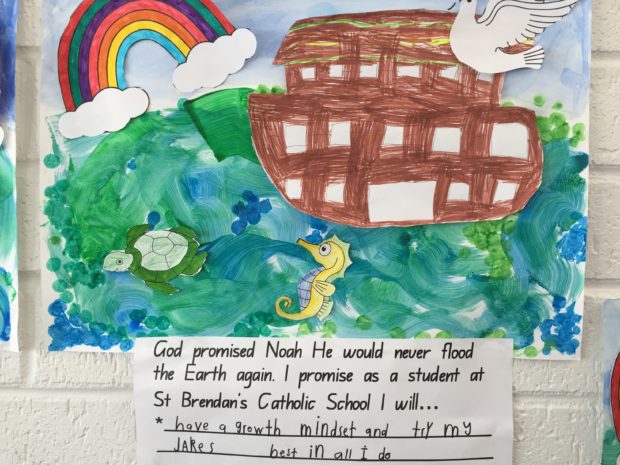 God promised Noah He would never flood
the Earth again. I promise as a student at
St Brendan's Catholic School I will...
* have a growth mindset and try my
JAKes best in all I do